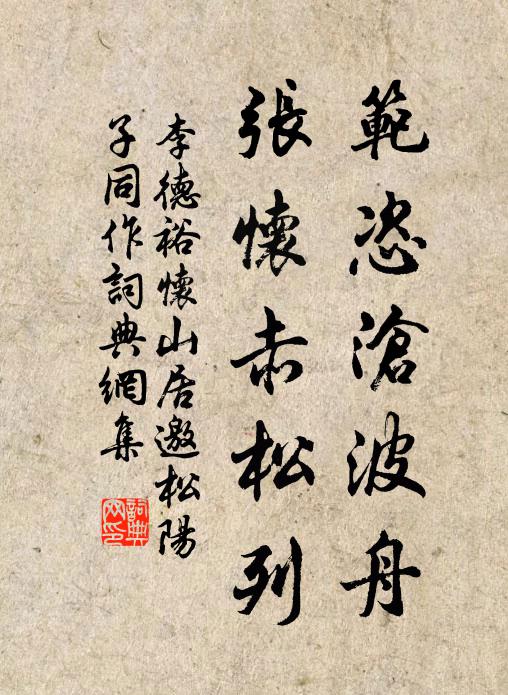 範恣滄波舟
張懷赤松列
李德裕懷山居邀松陽
子同作詞典網集
詞典
网印